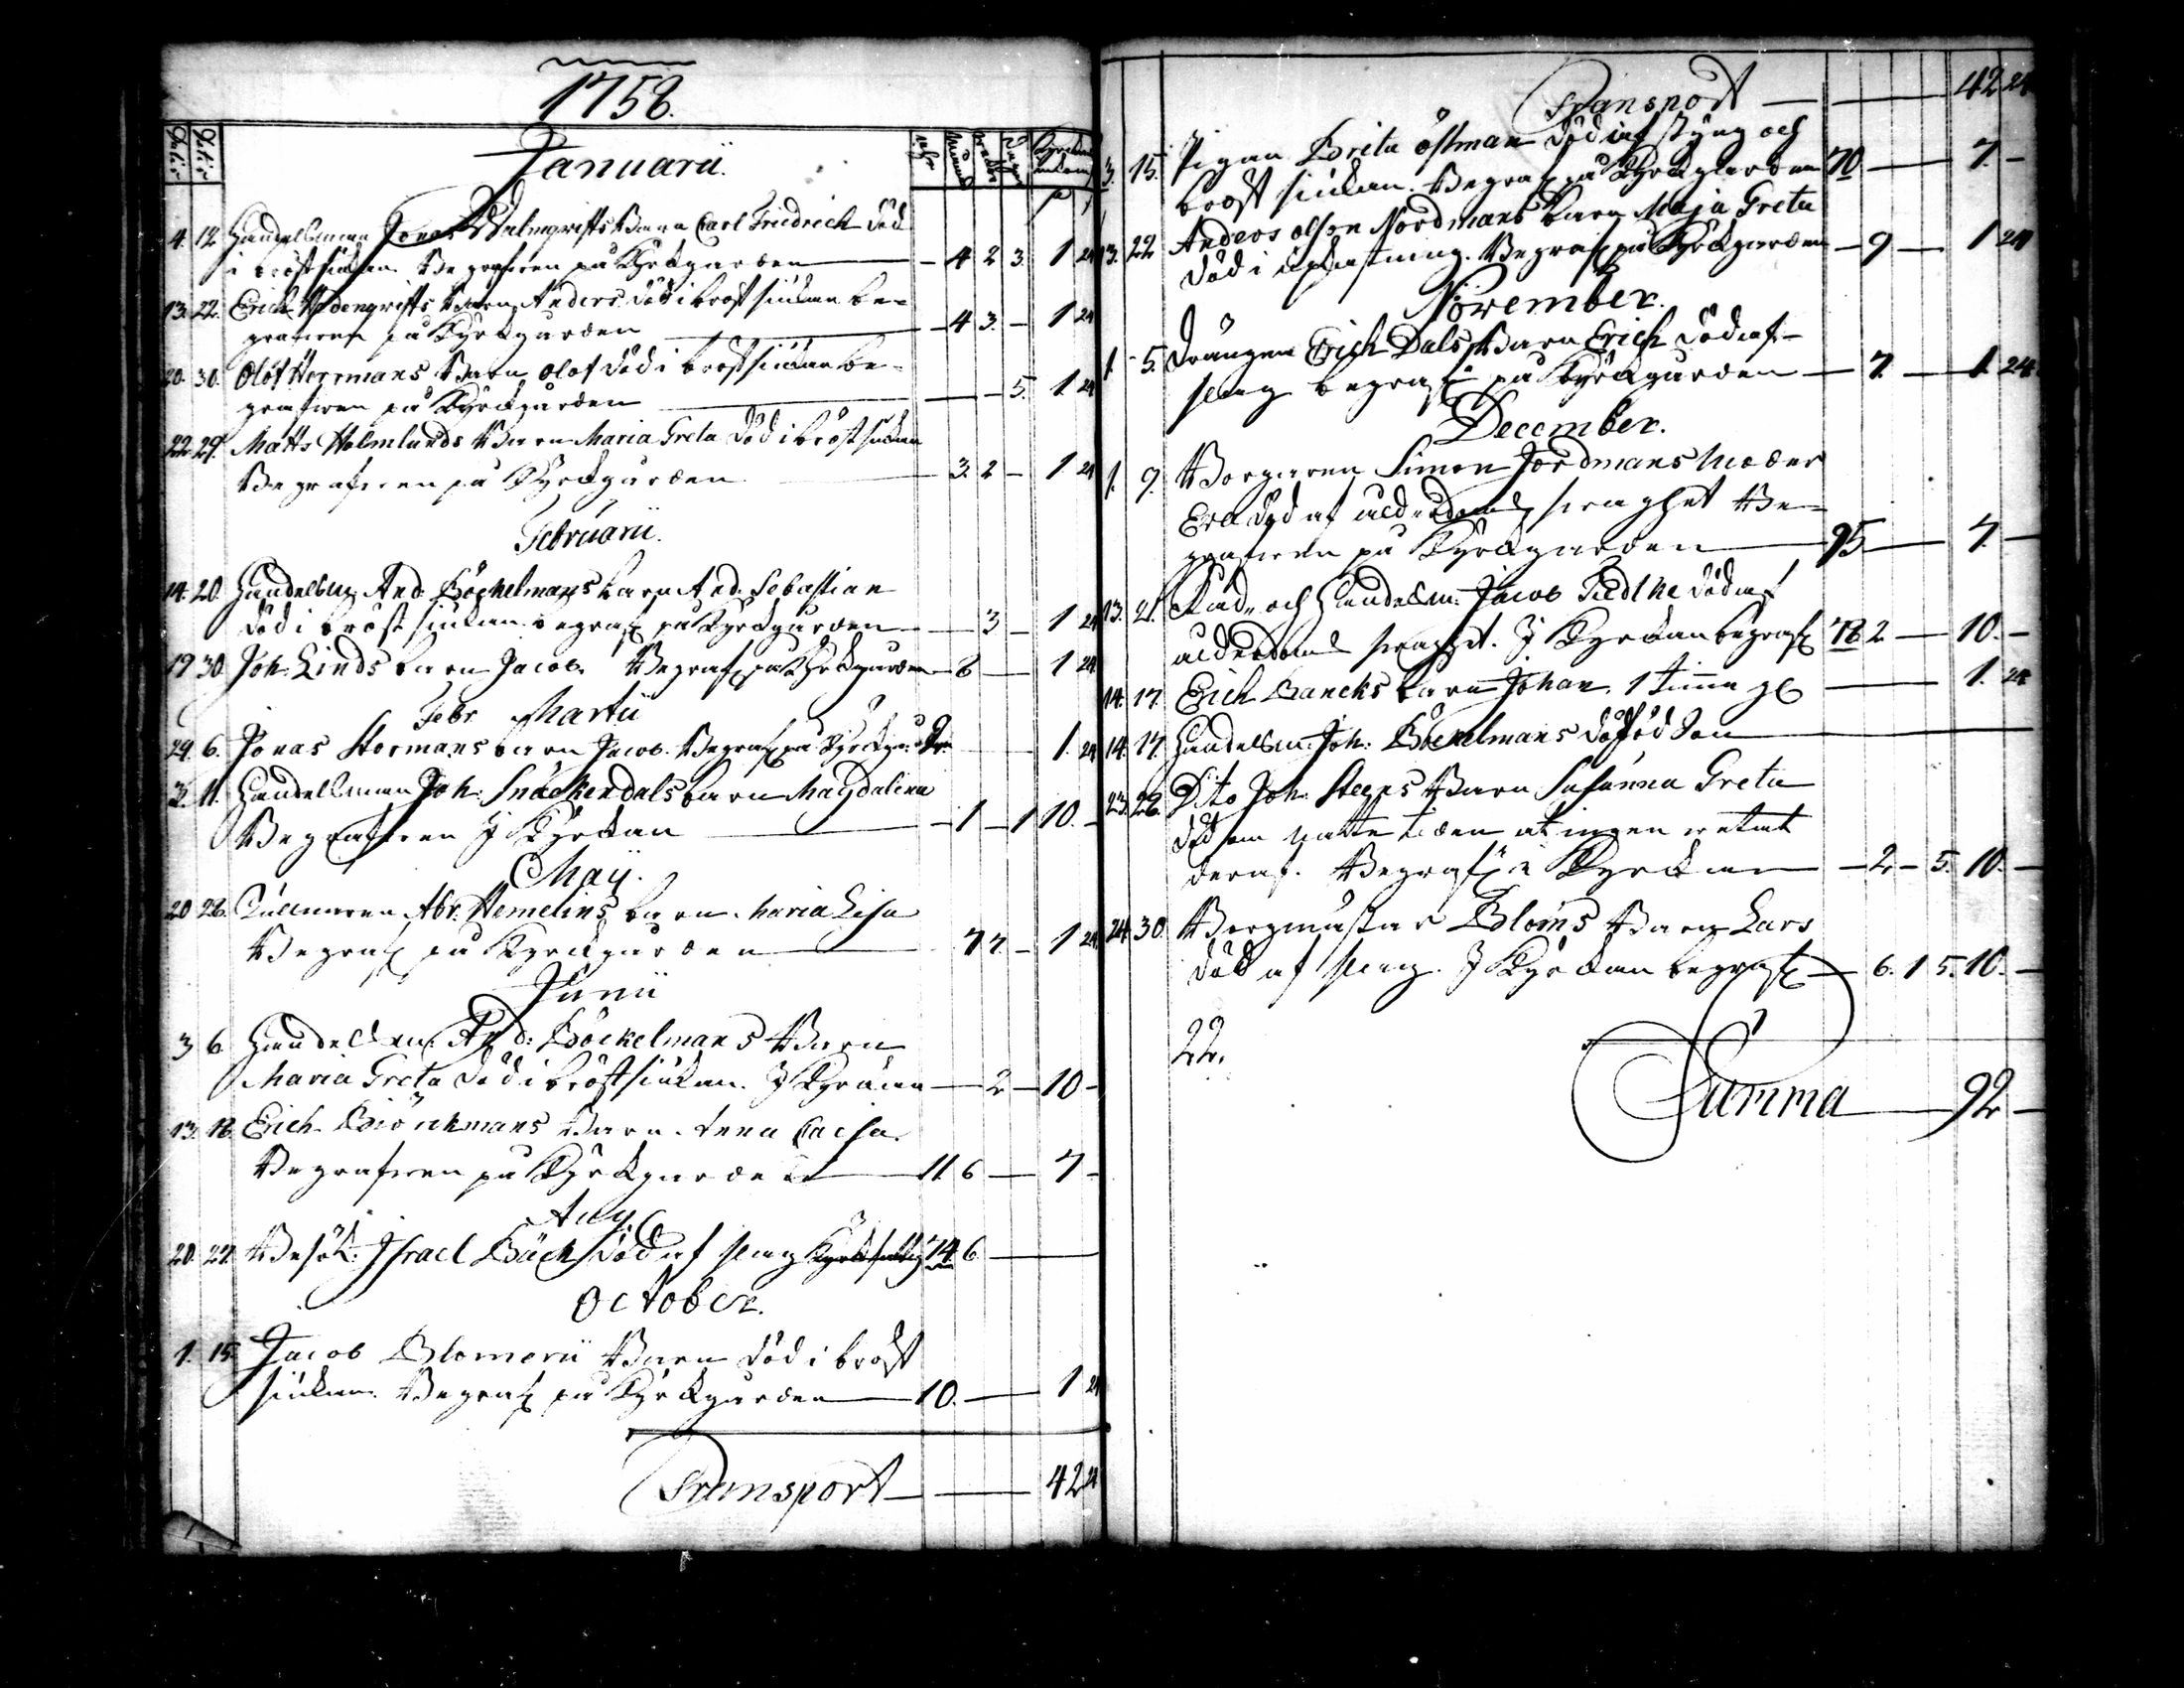 1758.
Januarii.
4. 12 Handelsman Jonas Malmqvists Barn Carl Friedrich död
i bröstsiukan Begrafven på Kyrkgården — 4 2 3. 1. 24
13. 22. Erich Widenqvists Barn Anders. död i bröstsiukan be-
grafven på Kyrkgården — 4 3. — 1 24
20. 30. Olof Herrmans Barn Olof död i bröstsiukan be-
grafven på Kyrkgården — 5. 1. 24
22 29. Matts Holmlunds Barn Maria Greta död i bröstsiukan
Begrafven på Kyrkgården — 3. 2 — 1 24
Februarii.
14. 20. Handelsm. And. Böckelmans barn And. Sebastian
död i bröstsiukan begraf. på Kyrkgården — 3 — 1 24
19 30 Joh. Linds barn Jacob. Begraf. på Kyrkgården — 6 — 1 24
Febr. Martii
24. 6. Jonas Stormans barn Jacob. Begraf. på Kyrkgården — 1. 24
3. 11. Handelsman Joh. Snäckendals barn Magdalena
Begrafven I Kyrkan — 1 — 1 10. —
Maij.
20 28. Tullnären Abr. Hemelins barn. Maria Lisa
Begraf. på Kyrkgården — 7 7. — 1 24
Junii
3 6 Handelsm. And: Böckelmans Barn
Maria Greta död i bröstsiukan. I Kyrkan — 2 — 10 —
13. 18. Erich Biörckmans Barn Anna Caisa.
Begrafven på Kyrkgården — 11. 6 — 7 —
Aug.
20. 27. Besök. Israel Bäck död af slag 74. 6 —
October.
1. 15. Jacob Blomerii Barn död i bröst
siukan. Begraf. på Kyrkgården — 10. — 1 24
Transport — 42 24
Transport — 42 24
3. 15. Pigan Brita Östman död af styng och
bröst siukan. Begraf. på Kyrkgården 70 — 7. —
13. 22 Anders Olsson Nordmans barn Maja Greta
död i Begraf. på Kyrkgården — 9 — 1 24
November.
1. 5. Drängen Erich Dals Barn Erich död af
slag begraf. på Kyrkgården — 7. — 1 24.
December.
1. 9. Borgaren Simon Jordmans Moder
Eva död af ålderdoms svaghet Be-
grafven på Kyrkgården — 95 — 7. —
13. 21. Råd- och Handelsm: Jacob Tiedtke död af
ålderdoms svaghet. I Kyrkan begraf. 78 2 — 10. —
14. 17. Erich Bancks barn Johan. 1 timma gl. — 1. 24
14. 17. Handelsm. Joh: Böckelmans dödfödd Son —
23. 28. Dito Joh: Steens Barn Susanna Greta
död om natte tiden at ingen vetat
deraf. Begraf. i Kyrckan — 2 — 5. 10. —
24. 30. Borgmästar Bloms Barn Lars
död af slag. I Kyrckan begraf. — 6. 1 5. 10. —
22.
Summa — 92 —